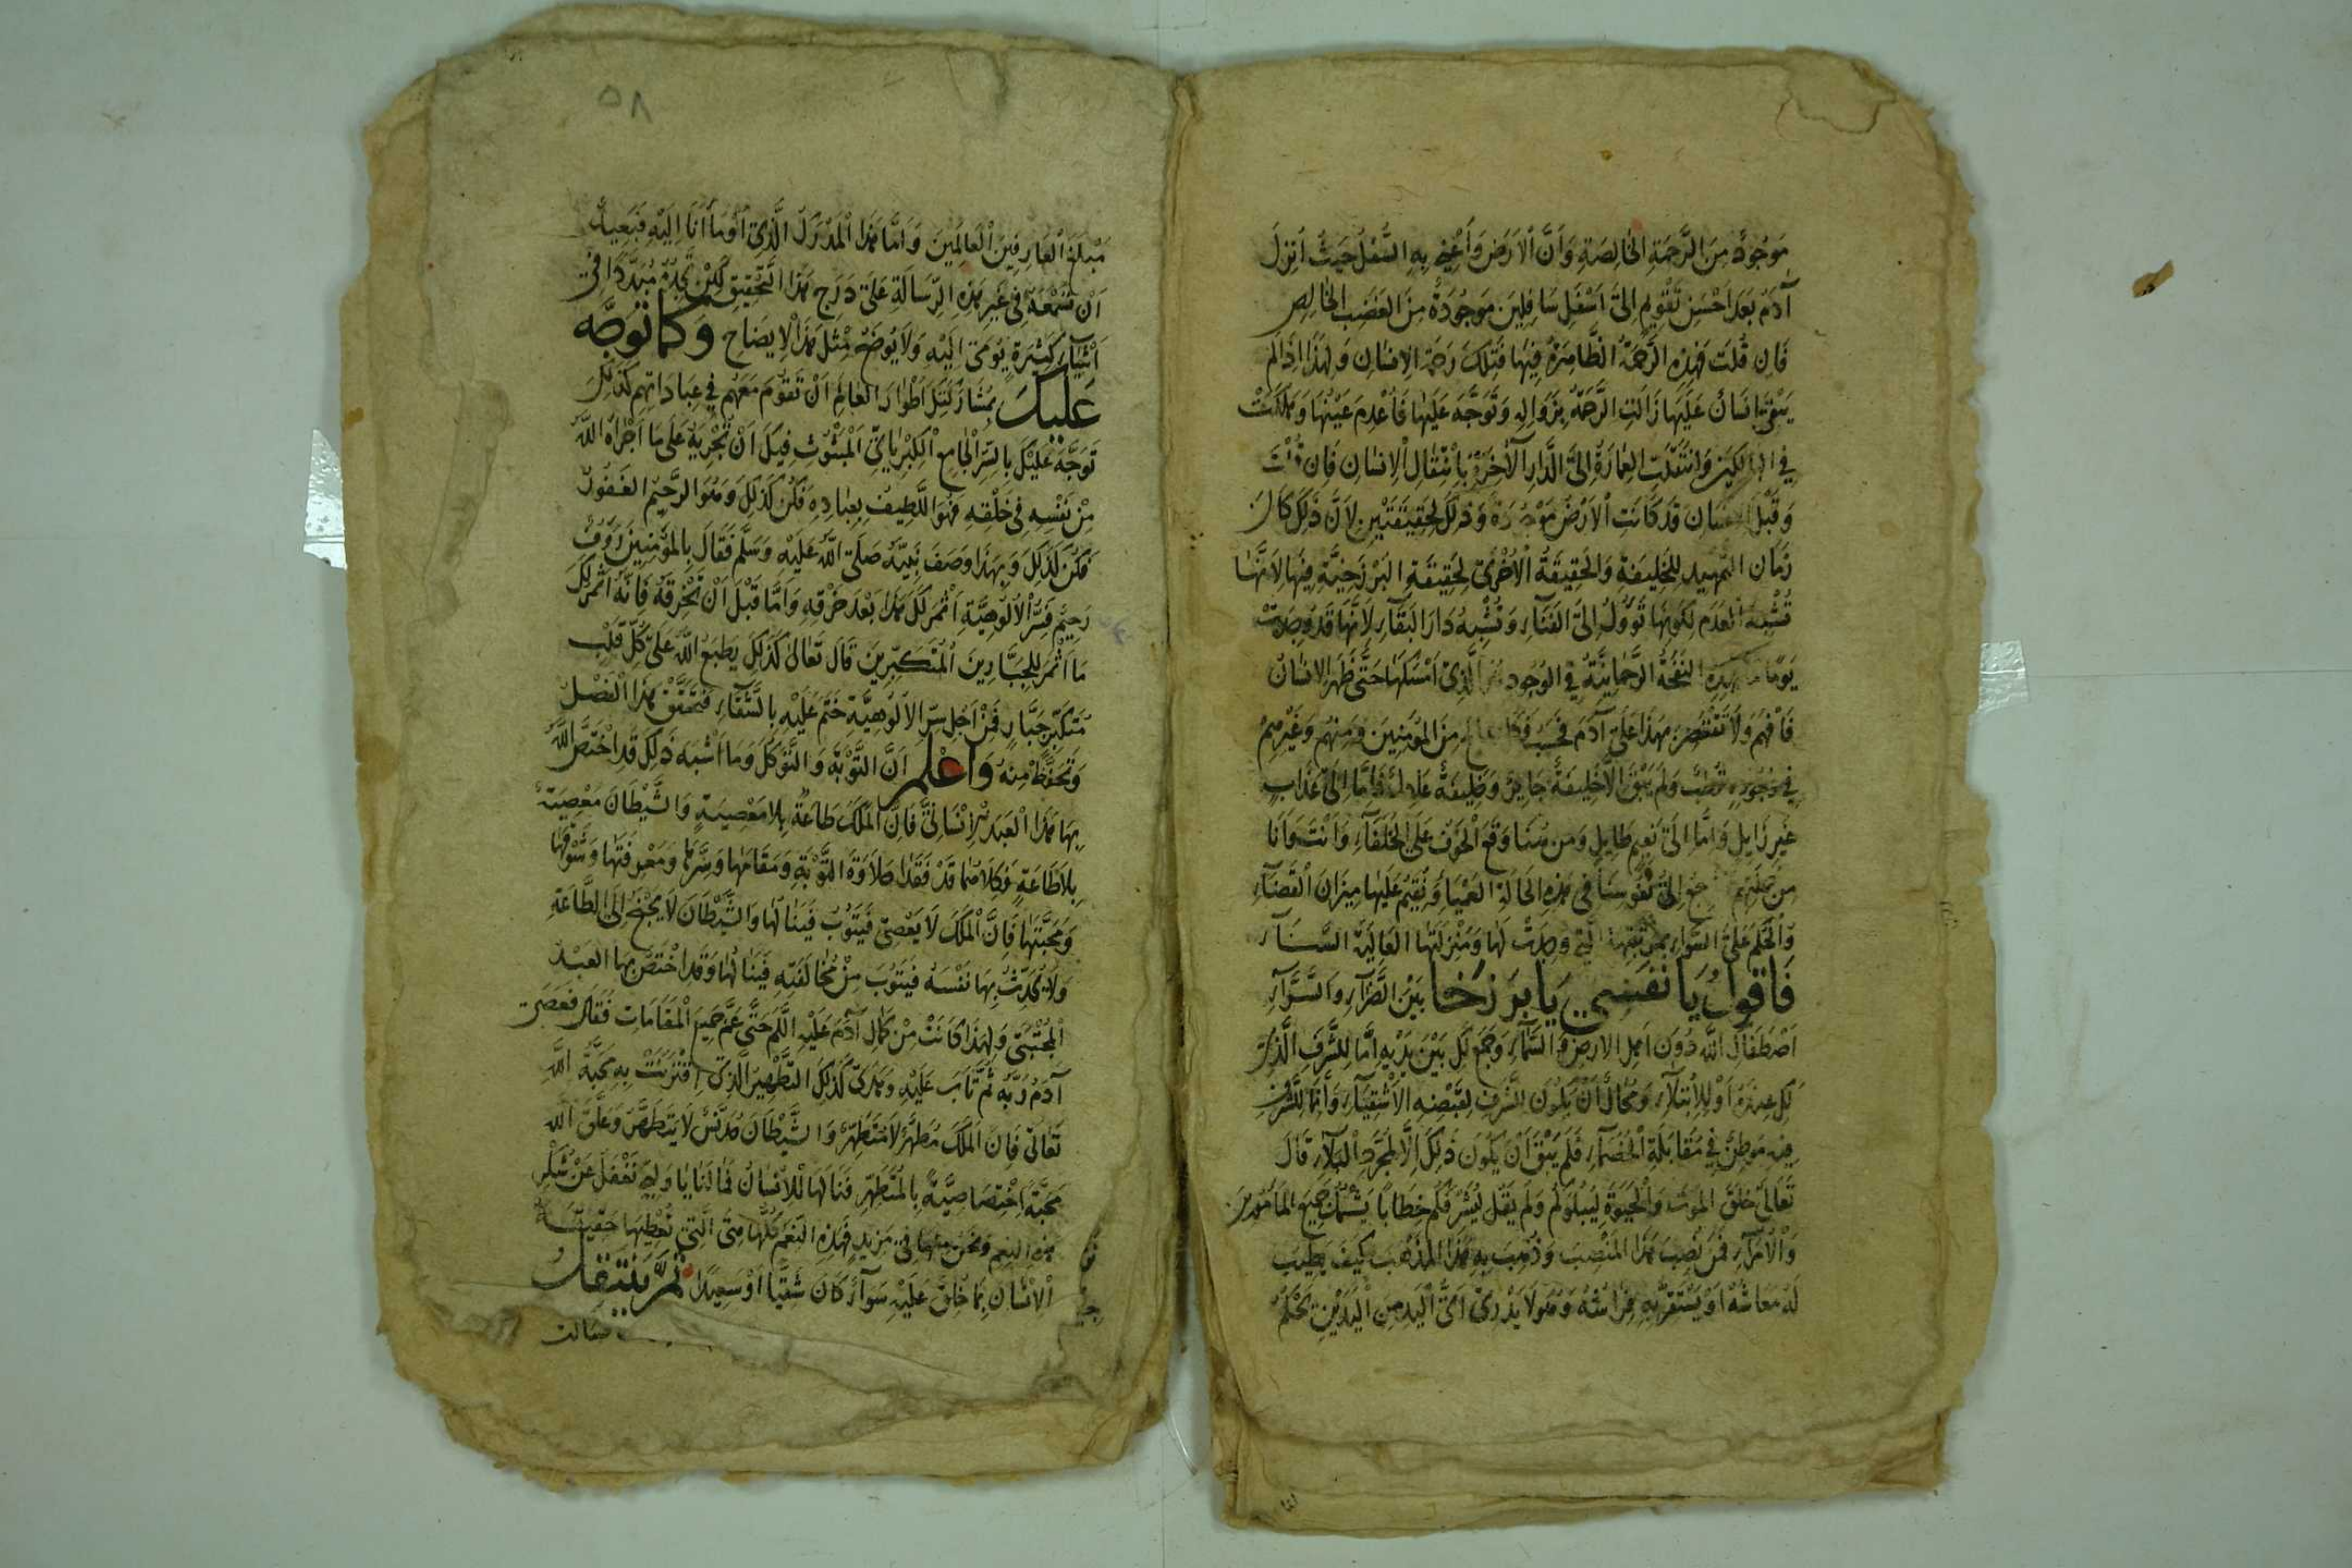 مَوْجُودٌ مِنَ الرَّحْمَةِ الخَالِصَةِ وَأَنَّ الْاَرْضَ وَأَعْنِي بِهِ السُّفْلَ حَيْثُ اُنْزِلَ
آدَمُ بَعْدَ اَحْسَنِ تَقْوِيمٍ اِلىَ اَسْفَلِ سَافِلِينَ مَوْجُودَةٌ مِنَ الغَضَبِ الخَالِصِ
فَاِن قُلْتَ فَهٰذِهِ الرَّحْمَةُ الظَّاهِرَةُ فِيهَا فَتِلْكَ رَحْمَةُ الاِنسَانِ وَلِهٰذَا اِذَا لَمْ
يَبْقَ اِنسَانٌ عَلَيْهَا زَالَتِ الرَّحْمَةُ بِزَوَالِهِ وَتَوَجَّهَ عَلَيْهَا فَاُعْدِمَ عَيْنُهَا وَهَلَكَتْ
في وَانْتَقَلَتِ العِمَارَةُ اِلىَ الدَّارِ الْآخِرَةِ بِاِنْتِقَالِ الْاِنسَانِ فَاِن قُلْتَ
وَقَبْلَ الاِنسَانِ قَدْ كَانَتِ الْاَرْضُ مَوْجُودَةً وَذٰلِكَ لِحَقِيقَتَيْنِ لاَنَّ ذٰلِكَ كَانَ
زَمَانَ التَّمْهِيدِ لِلخَلِيفَةِ وَالحَقِيقَةُ الْاُخْرٰى لِحَقِيقَةِ البَرْزَخِيَّةِ فِيهَا لِاَنَّهَا
تُشْبِهُ الْعَدَمَ لِكَوْنِهَا تَؤُولُ اِلىَ الفَنَآءِ وَتُشْبِهُ دَارَ البَقَآءِ لَاَنَّهَا قَدْ وُجِدَتْ
يَوْمًا النَّفْخَةُ الرَّحْمَانِيَّةُ فِي الوُجُودِ الَّذِي اَمْسَكَهَا حَتَّى ظَهَرَ الاِنسَانُ
فَافْهَمْ وَلَا تَقْتَصِرْ بِهٰذَا عَلىٰ آدَمَ فَحَسْبُ مِنَ المُؤْمِنِينَ وَمِنْهُمْ وَغَيْرِهِمْ
في وُجُودِهِ قُطْبٌ وَلَمْ يَبْقَ اِلَّا خَلِيفَةٌ جَايِرٌ وَخَلِيفَةٌ عَادِلٌ فَاِمَّا اِلىٰ عَذَابٍ
غَيْرِ زَايِلٍ وَاِمَّا اِلىٰ نَعِيمٍ طَايِلٍ وَمِن هُنَا وَقَعَ الْخَوْفُ عَلَى الخُلَفَآءِ وَاَنْتَ وَاَنَا
مِن جُمْلَتِهِمْ اِلىٰ نُفُوسِنَا فِي هٰذِهِ الحَالَةِ العَمْيَآءِ وَنُقِيمُ عَلَيْهَا مِيزَانَ القَضَآءِ
وَالْحُكْمِ عَلَى السَّوَآءِ الَّتِي وُجِدَتْ لَهَا وَمَنْزِلَتِهَا العَالِيَةِ السَّنَآءِ
فَاقُولُ يَا نَفْسِي يَا بَرْزَخًا بَيْنَ الضَّرَّآءِ وَالسَّرَّآءِ
اَصْطَفَاكِ اللّٰهُ دُونَ اَهْلِ الاَرْضِ وَالسَّمَآءِ وَجَمَعَ لَكِ بَيْنَ يَدَيْهِ اِمَّا لِلشَّرَفِ الَّذِي
لَكِ عِنْدَهُ اَوْ لِلْاِبْتِلَآءِ وَمُحَالٌ اَنْ يَكُونَ لِلشَّرَفِ لِقَبْضِهِ الاَشْقِيَآءِ وَاِنَّمَا لِلشَّرَفِ
فِيهِ مَوْطِنٌ في مُقَابَلَةِ الْخُصَمَآءِ فَلَمْ يَبْقَ اَنْ يَكُونَ ذٰلِكَ اِلَّا لِمُجَرَّدِ الْبَلَآءِ قَالَ
تَعَالىٰ خَلَقَ المَوْتَ وَالْحَيٰوةَ لِيَبْلُوَكُمْ وَلَمْ يَقُلْ لِيُشَرِّفَكُمْ خِطَابًا يَشْمَلُ جَمِيعَ المَأمُورِينَ
وَالْاُمَرَآءِ فَمَنْ نُصِبَ هٰذَا المَنْصِبَ وَذُهِبَ بِهِ هٰذَا المَذْهَبَ كَيْفَ يَطِيبُ
لَهُ مَعَاشُهُ اَوْ يَسْتَقِرُّ بِهِ فِرَاشُهُ وَهُوَ لَا يَدْرِي اَىُّ الْيَدِ مِنَ الْيَدَيْنِ تَحْكُمُ
٥٨
مَبْلَغُ العَارِفِينَ الْعَالِمِينَ وَاَمَّا هٰذَا الْمَدْرَكُ الَّذِي اُوْمَأنَا اِلَيْهِ فَبَعِيدٌ
اَنْ تَسْمَعَهُ فِي غَيْرِ هٰذِهِ الرِّسَالَةِ عَلىٰ دَرَجِ هٰذَا التَّحْقِيقِ لٰكِنْ تَجِدُهُ مُبَدَّدًا فِي
اَشْيَآءَ كَثِيرَةٍ يُومٰى اِلَيْهِ وَلَا يُوضَحُ مِثْلَ هٰذَا الْاِيضَاحِ وَكَمَا تَوَجَّهَ
عَلَيْكَ بِمُشَارَكَتِكَ اَطْوَارَ العَالَمِ اَنْ تَقُومَ مَعَهُمْ فِي عِبَادَاتِهِمْ كَذٰلِكَ
تَوَجَّهَ عَلَيْكَ بِالسِّرِّ الْجَامِعِ الْكِبْرِيَائِيِّ الْمَبْثُوثِ فِيكَ اَنْ تُجْرِيَهُ عَلىٰ مَا اَجْرَاهُ اللّٰهُ
مِنْ نَفْسِهِ فِي خَلْقِهِ فَهُوَ اللَّطِيفُ بِعِبَادِهِ فَكُنْ كَذٰلِكَ وَهُوَ الرَّحِيمُ الغَفُورُ
فَكُنْ كَذٰلِكَ وَبِهٰذَا وَصَفَ نَبِيَّهُ صَلَّى اللّٰهُ عَلَيْهِ وَسَلَّمَ فَقَالَ بِالمُؤْمِنِينَ رَؤُفٌ
رَحِيمٌ فَسِرُّ الْاُلُوهِيَّةِ اَثْمَرَ لَكَ هٰذَا بَعْدَ خَرْقِهِ وَاَمَّا قَبْلَ اَنْ تَخْرِقَهُ فَاِنَّهُ اَثْمَرَ لَكَ
مَا اَثْمَرَ لِلجَبَّارِينَ الْمُتَكَبِّرِينَ قَالَ تَعَالىٰ كَذٰلِكَ يَطْبَعُ اللّٰهُ عَلىٰ كُلِّ قَلْبِ
مُتَكَبِّرٍ جَبَّارٍ فَمَنْ اَجْلِ سِرِّ الاُلُوهِيَّةِ خَتَمَ عَلَيْهِ بِالشَّقَآءِ فَتَحَقَّقْ هٰذَا الْفَصْلَ
وَتَحَفَّظْ مِنْهُ وَاعْلَمْ اَنَّ التَّوْبَةَ وَالتَّوَكُّلَ وَمَا اَشْبَهَ ذٰلِكَ قَدِ اخْتَصَّ اللّٰهُ
بِهَا هٰذَا الْعَبْدَ الْاِنْسَانِيَّ فَاِنَّ الْمَلَكَ طَاعَةٌ بِلَا مَعْصِيَةٍ وَالشَّيْطَانَ مَعْصِيَةٌ
بِلَا طَاعَةٍ فَكِلَاهُمَا قَدْ فَقَدَا حَلَاوَةَ التَّوْبَةِ وَمَقَامَهَا وَسِرَّهَا وَمَعْرِفَتَهَا وَشَوْقَهَا
وَمَحَبَّتَهَا فَاِنَّ الْمَلَكَ لَا يَعْصِي فَيَتُوبَ فَيَنَالَهَا وَالشَّيْطَانَ لَا يَجْنَحُ اِلَى الطَّاعَةِ
وَلَا يُحَدِّثُ بِهَا نَفْسَهُ فَيَتُوبَ مِنْ مُخَالَفَتِهِ فَيَنَالَهَا وَقَدِ اخْتَصَّ بِهَا العَبْدُ
الْمُجْتَبٰى وَلِهٰذَا كَانَتْ مِنْ كَمَالِ آدَمَ عَلَيْهِ السَّلَمُ حَتَّى عَمَّ جَمِيعَ الْمَقَامَاتِ فَقَالَ فَعَصٰى
آدَمُ رَبَّهُ ثُمَّ تَابَ عَلَيْهِ وَهَدٰى كَذٰلِكَ التَّطْهِيرُ الَّذِي اقْتَرَنَتْ بِهِ مَحَبَّةُ اللّٰهِ
تَعَالىٰ فَاِنَّ الْمَلَكَ مُطَهَّرٌ لَا مُتَطَهِّرٌ وَالشَّيْطَانَ مُدَنَّسٌ لَا يَتَطَهَّرُ وَعَلَّقَ اللّٰهُ
مَحَبَّةً اِخْتِصَاصِيَّةً بِالمُتَطَهِّرِ فَنَالَهَا الْاِنْسَانُ فَمَا لَنَا يَا وَلِيِّ نَغْفُلُ عَنْ شُكْرِ
هٰذِهِ النِّعَمِ وَنَحْنُ مِنْهَا فِي مَزِيدٍ فَهٰذِهِ النِّعَمُ كُلُّهَا هِيَ الَّتِي تُعْطِيهَا حَقِيقَةُ
الْاِنْسَانِ بِمَا خُلِقَ عَلَيْهِ سَوَآءٌ كَانَ شَقِيًّا اَوْ سَعِيدًا ثُمَّ يَنْتَقِلُ